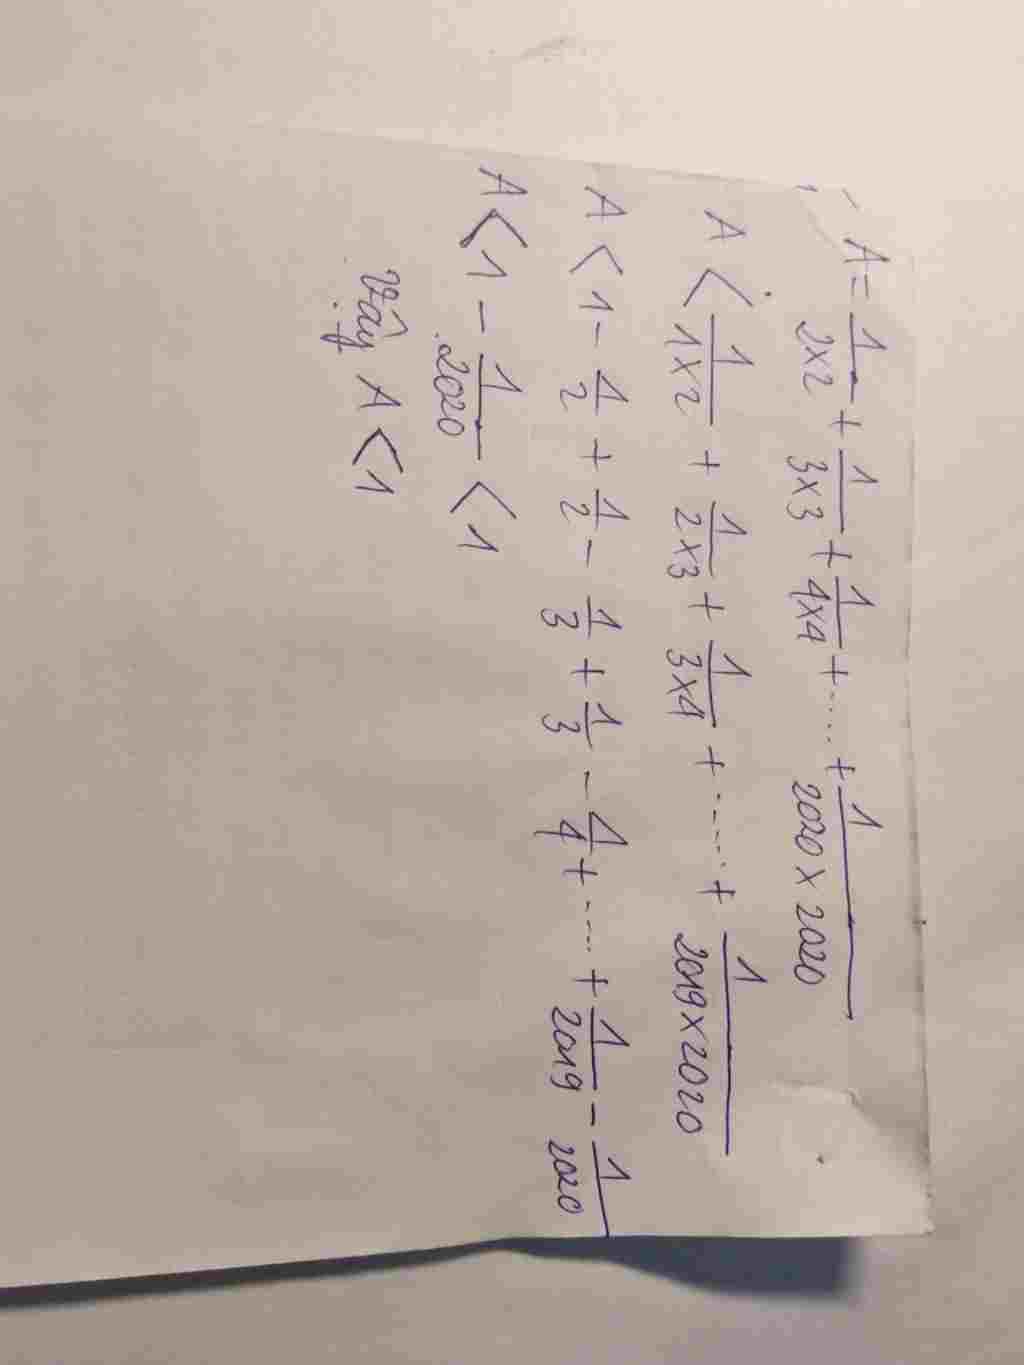 A = 1/2×2 + 1/3×3 + 1/4×4 + ..... + 1/2020×2020
A < 1/1×2 + 1/2×3 + 1/3×4 + ..... + 1/2019×2020
A < 1 - 1/2 + 1/2 - 1/3 + 1/3 - 1/4 + ..... + 1/2019 - 1/2020
A < 1 - 1/2020 < 1
Vậy A < 1